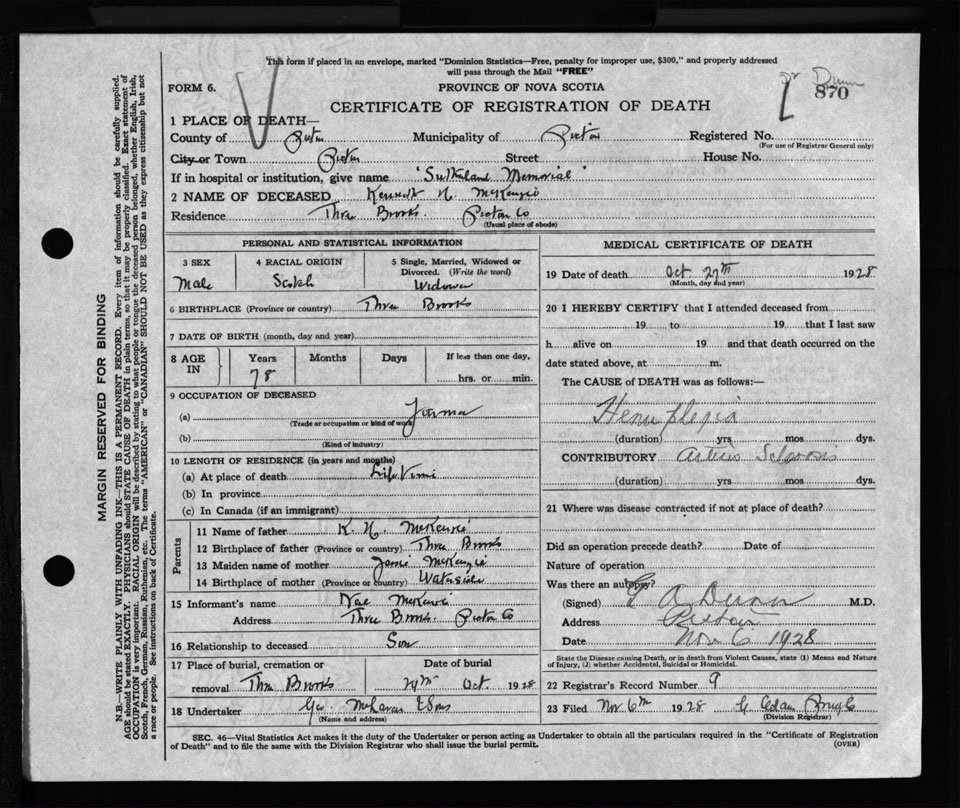 This form if placed in an envelope, marked "Dominion Statistics—Free, penalty for improper use, $300," and properly addressed
will pass through the Mail "FREE"
Dr Dunn
870
FORM 6.
PROVINCE OF NOVA SCOTIA
CERTIFICATE OF REGISTRATION OF DEATH
1 PLACE OF DEATH—
County of Pictou Municipality of Pictou Registered No.
(For use of Registrar General only)
City or Town Pictou Street House No.
If in hospital or institution, give name 'Sutherland Memorial'
2 NAME OF DECEASED Kenneth N. McKenzie
Residence Three Brooks. Pictou Co
(Usual place of abode)
PERSONAL AND STATISTICAL INFORMATION
3 SEX 4 RACIAL ORIGIN 5 Single, Married, Widowed or
Divorced. (Write the word)
Male Scotch Widower
6 BIRTHPLACE (Province or country) Three Brooks
7 DATE OF BIRTH (month, day and year)
8 AGE IN Years Months Days If less than one day,
78 hrs. or min.
9 OCCUPATION OF DECEASED
(a) Farmer
(Trade or occupation or kind of work)
(b)
(Kind of industry)
10 LENGTH OF RESIDENCE (in years and months)
(a) At place of death Life Time
(b) In province
(c) In Canada (if an immigrant)
Parents
11 Name of father K. N. McKenzie
12 Birthplace of father (Province or country) Three Brooks
13 Maiden name of mother McKenzie
14 Birthplace of mother (Province or country) Waterside
15 Informant's name McKenzie
Address Three Brooks. Pictou Co
16 Relationship to deceased Son
17 Place of burial, cremation or Date of burial
removal Three Brooks 29th Oct. 1928
18 Undertaker & Sons
(Name and address)
MEDICAL CERTIFICATE OF DEATH
19 Date of death Oct 27th 1928
(Month, day and year)
20 I HEREBY CERTIFY that I attended deceased from
19 to 19 that I last saw
h alive on 19 and that death occurred on the
date stated above, at m.
The CAUSE of DEATH was as follows:—
Hemiplegia
(duration) yrs mos dys.
CONTRIBUTORY
(duration) yrs mos dys.
21 Where was disease contracted if not at place of death?
Did an operation precede death? Date of
Nature of operation
Was there an autopsy?
(Signed) G A Dunn M.D.
Address Pictou
Date Nov 6 1928
State the Disease causing Death, or in death from Violent Causes, state (1) Means and Nature
of Injury, (2) whether Accidental, Suicidal or Homicidal.
22 Registrar's Record Number 9
23 Filed Nov 6th 1928 G. Adam
(Division Registrar)
SEC. 46—Vital Statistics Act makes it the duty of the Undertaker or person acting as Undertaker to obtain all the particulars required in the "Certificate of Registration
of Death" and to file the same with the Division Registrar who shall issue the burial permit. (OVER)
MARGIN RESERVED FOR BINDING
N.B.—WRITE PLAINLY WITH UNFADING INK—THIS IS A PERMANENT RECORD. Every item of information should be carefully supplied.
AGE should be stated EXACTLY. PHYSICIANS should STATE CAUSE OF DEATH in plain terms, so that it may be properly classified. Exact statement of
OCCUPATION is very important. RACIAL ORIGIN will be described by stating to what people or tongue the deceased person belonged, whether English, Irish,
Scotch, French, German, Russian, Ruthenian, etc. The terms "AMERICAN" or "CANADIAN" SHOULD NOT BE USED as they express citizenship but not
a race or people. See instructions on back of Certificate.